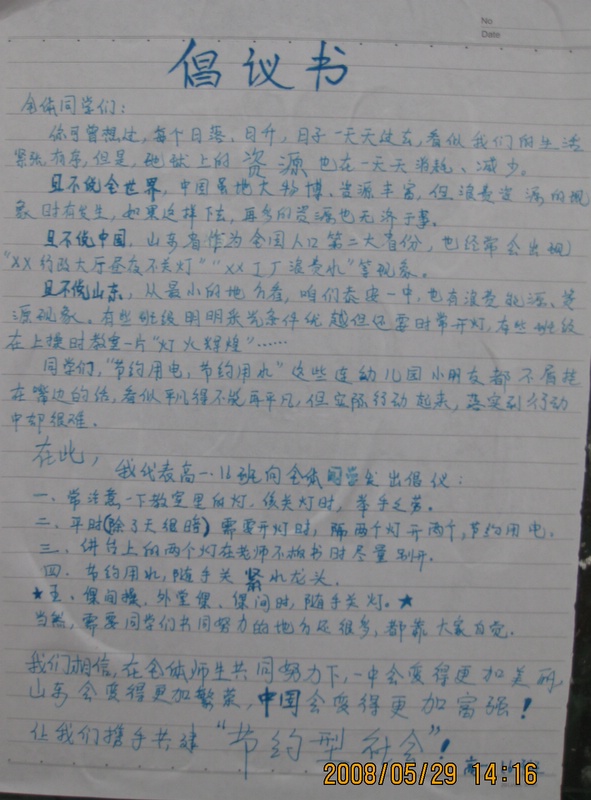 No
Date
倡议书
全体同学们：
你可曾想过,每个日落、日升,日子一天天过去,看似我们的生活
紧张有序,但是,地球上的资源也在一天天消耗、减少。
且不说全世界,中国虽地大物博、资源丰富,但浪费资源的现
象时有发生,如果这样下去,再多的资源也无济于事。
且不说中国,山东省作为全国人口第二大省份,也经常会出现
“XX行政大厅昼夜不关灯”“XX工厂浪费水”等现象。
且不说山东,从最小的地方看,咱们泰安一中,也有浪费能源、资
源现象。有些班级明明采光条件优越但还要时常开灯,有些班级
在上操时教室一片“灯火辉煌”……
同学们,“节约用电,节约用水”这些连幼儿园小朋友都不屑挂
在嘴边的话,看似平凡得不能再平凡,但实际行动起来,落实到行动
中却很难。
在此,我代表高一·16班向全体同学发出倡议:
一、常注意一下教室里的灯,该关灯时,举手之劳。
二、平时(除了天很暗)需要开灯时,隔两个灯开两个,节约用电。
三、讲台上的两个灯在老师不板书时尽量别开。
四、节约用水,随手关紧水龙头。
★五、课间操、外堂课、课间时,随手关灯。★
当然,需要同学们共同努力的地方还很多,都靠大家自觉。
我们相信,在全体师生共同努力下,一中会变得更加美丽,
山东会变得更加繁荣,中国会变得更加富强!
让我们携手共建“节约型社会”!
高一
2008/05/29 14:16